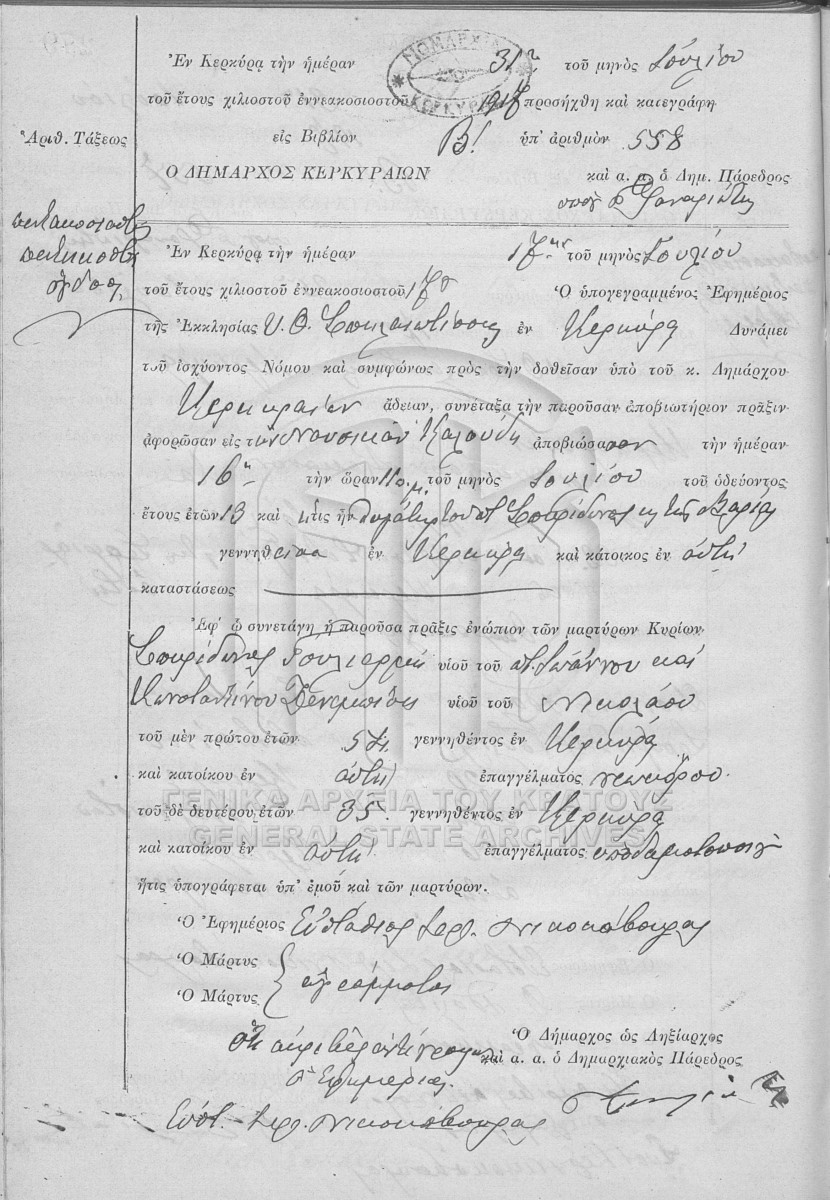 ΝΟΜΑΡΧΙΑ
ΚΕΡΚΥΡΑΣ
Ἐν Κερκύρᾳ τὴν ἡμέραν 31 τοῦ μηνὸς Ἰουλίου
τοῦ ἔτους χιλιοστοῦ ἐννεακοσιοστοῦ προσήχθη καὶ κατεγράφη
Ἀριθ. Τάξεως
εἰς Βιβλίον Β! ὑπ' ἀριθμὸν 558
Ο ΔΗΜΑΡΧΟΣ ΚΕΡΚΥΡΑΙΩΝ
καὶ α. α. ὁ Δημ. Πάρεδρος
πεντακοσιοστὴ
πεντηκοστὴ
ὀγδόη
Ἐν Κερκύρᾳ τὴν ἡμέραν 17ην τοῦ μηνὸς Ἰουλίου
τοῦ ἔτους χιλιοστοῦ ἐννεακοσιοστοῦ 17ου Ὁ ὑπογεγραμμένος Ἐφημέριος
τῆς Ἐκκλησίας Υ. Θ. Σπηλαιωτίσσης ἐν Κερκύρᾳ Δυνάμει
τοῦ ἰσχύοντος Νόμου καὶ συμφώνως πρὸς τὴν δοθεῖσαν ὑπὸ τοῦ κ. Δημάρχου
Κερκυραίων ἄδειαν, συνέταξα τὴν παροῦσαν ἀποβιωτήριον πρᾶξιν
ἀφορῶσαν εἰς τὴν Ναυσικᾶν ἀποβιώσασαν τὴν ἡμέραν
16ην τὴν ὥραν 11 π.μ. τοῦ μηνὸς Ἰουλίου τοῦ ὁδεύοντος
ἔτους ἐτῶν 13 καὶ ἥτις ἦν θυγάτηρ τοῦ Σπυρίδωνος κ τῆς Μαρίας
γεννηθεῖσα ἐν Κερκύρᾳ καὶ κάτοικος ἐν αὐτῇ
καταστάσεως
Ἐφ' ᾧ συνετάγη ἡ παροῦσα πρᾶξις ἐνώπιον τῶν μαρτύρων Κυρίων
Σπυρίδωνος υἱοῦ τοῦ Ἰωάννου καὶ
Κωνσταντίνου υἱοῦ τοῦ Νικολάου
τοῦ μὲν πρώτου ἐτῶν γεννηθέντος ἐν Κερκύρᾳ
καὶ κατοίκου ἐν αὐτῇ ἐπαγγέλματος
ΓΕΝΙΚΑ ΑΡΧΕΙΑ ΤΟΥ ΚΡΑΤΟΥΣ
τοῦ δὲ δευτέρου ἐτῶν 35 γεννηθέντος ἐν Κερκύρᾳ
GENERAL STATE ARCHIVES
καὶ κατοίκου ἐν αὐτῇ ἐπαγγέλματος ὑποδηματοποιοῦ
ἥτις ὑπογράφεται ὑπ' ἐμοῦ καὶ τῶν μαρτύρων.
Ὁ Ἐφημέριος Εὐστάθιος
Ὁ Μάρτυς
Ὁ Μάρτυς
ἀγράμματοι
Ὁ Δήμαρχος ὡς Ληξίαρχος
Ὅτι ἀκριβὲς ἀντίγραφον
καὶ α. α. ὁ Δημαρχιακὸς Πάρεδρος
ὁ Ἐφημέριος
Εὐστ.